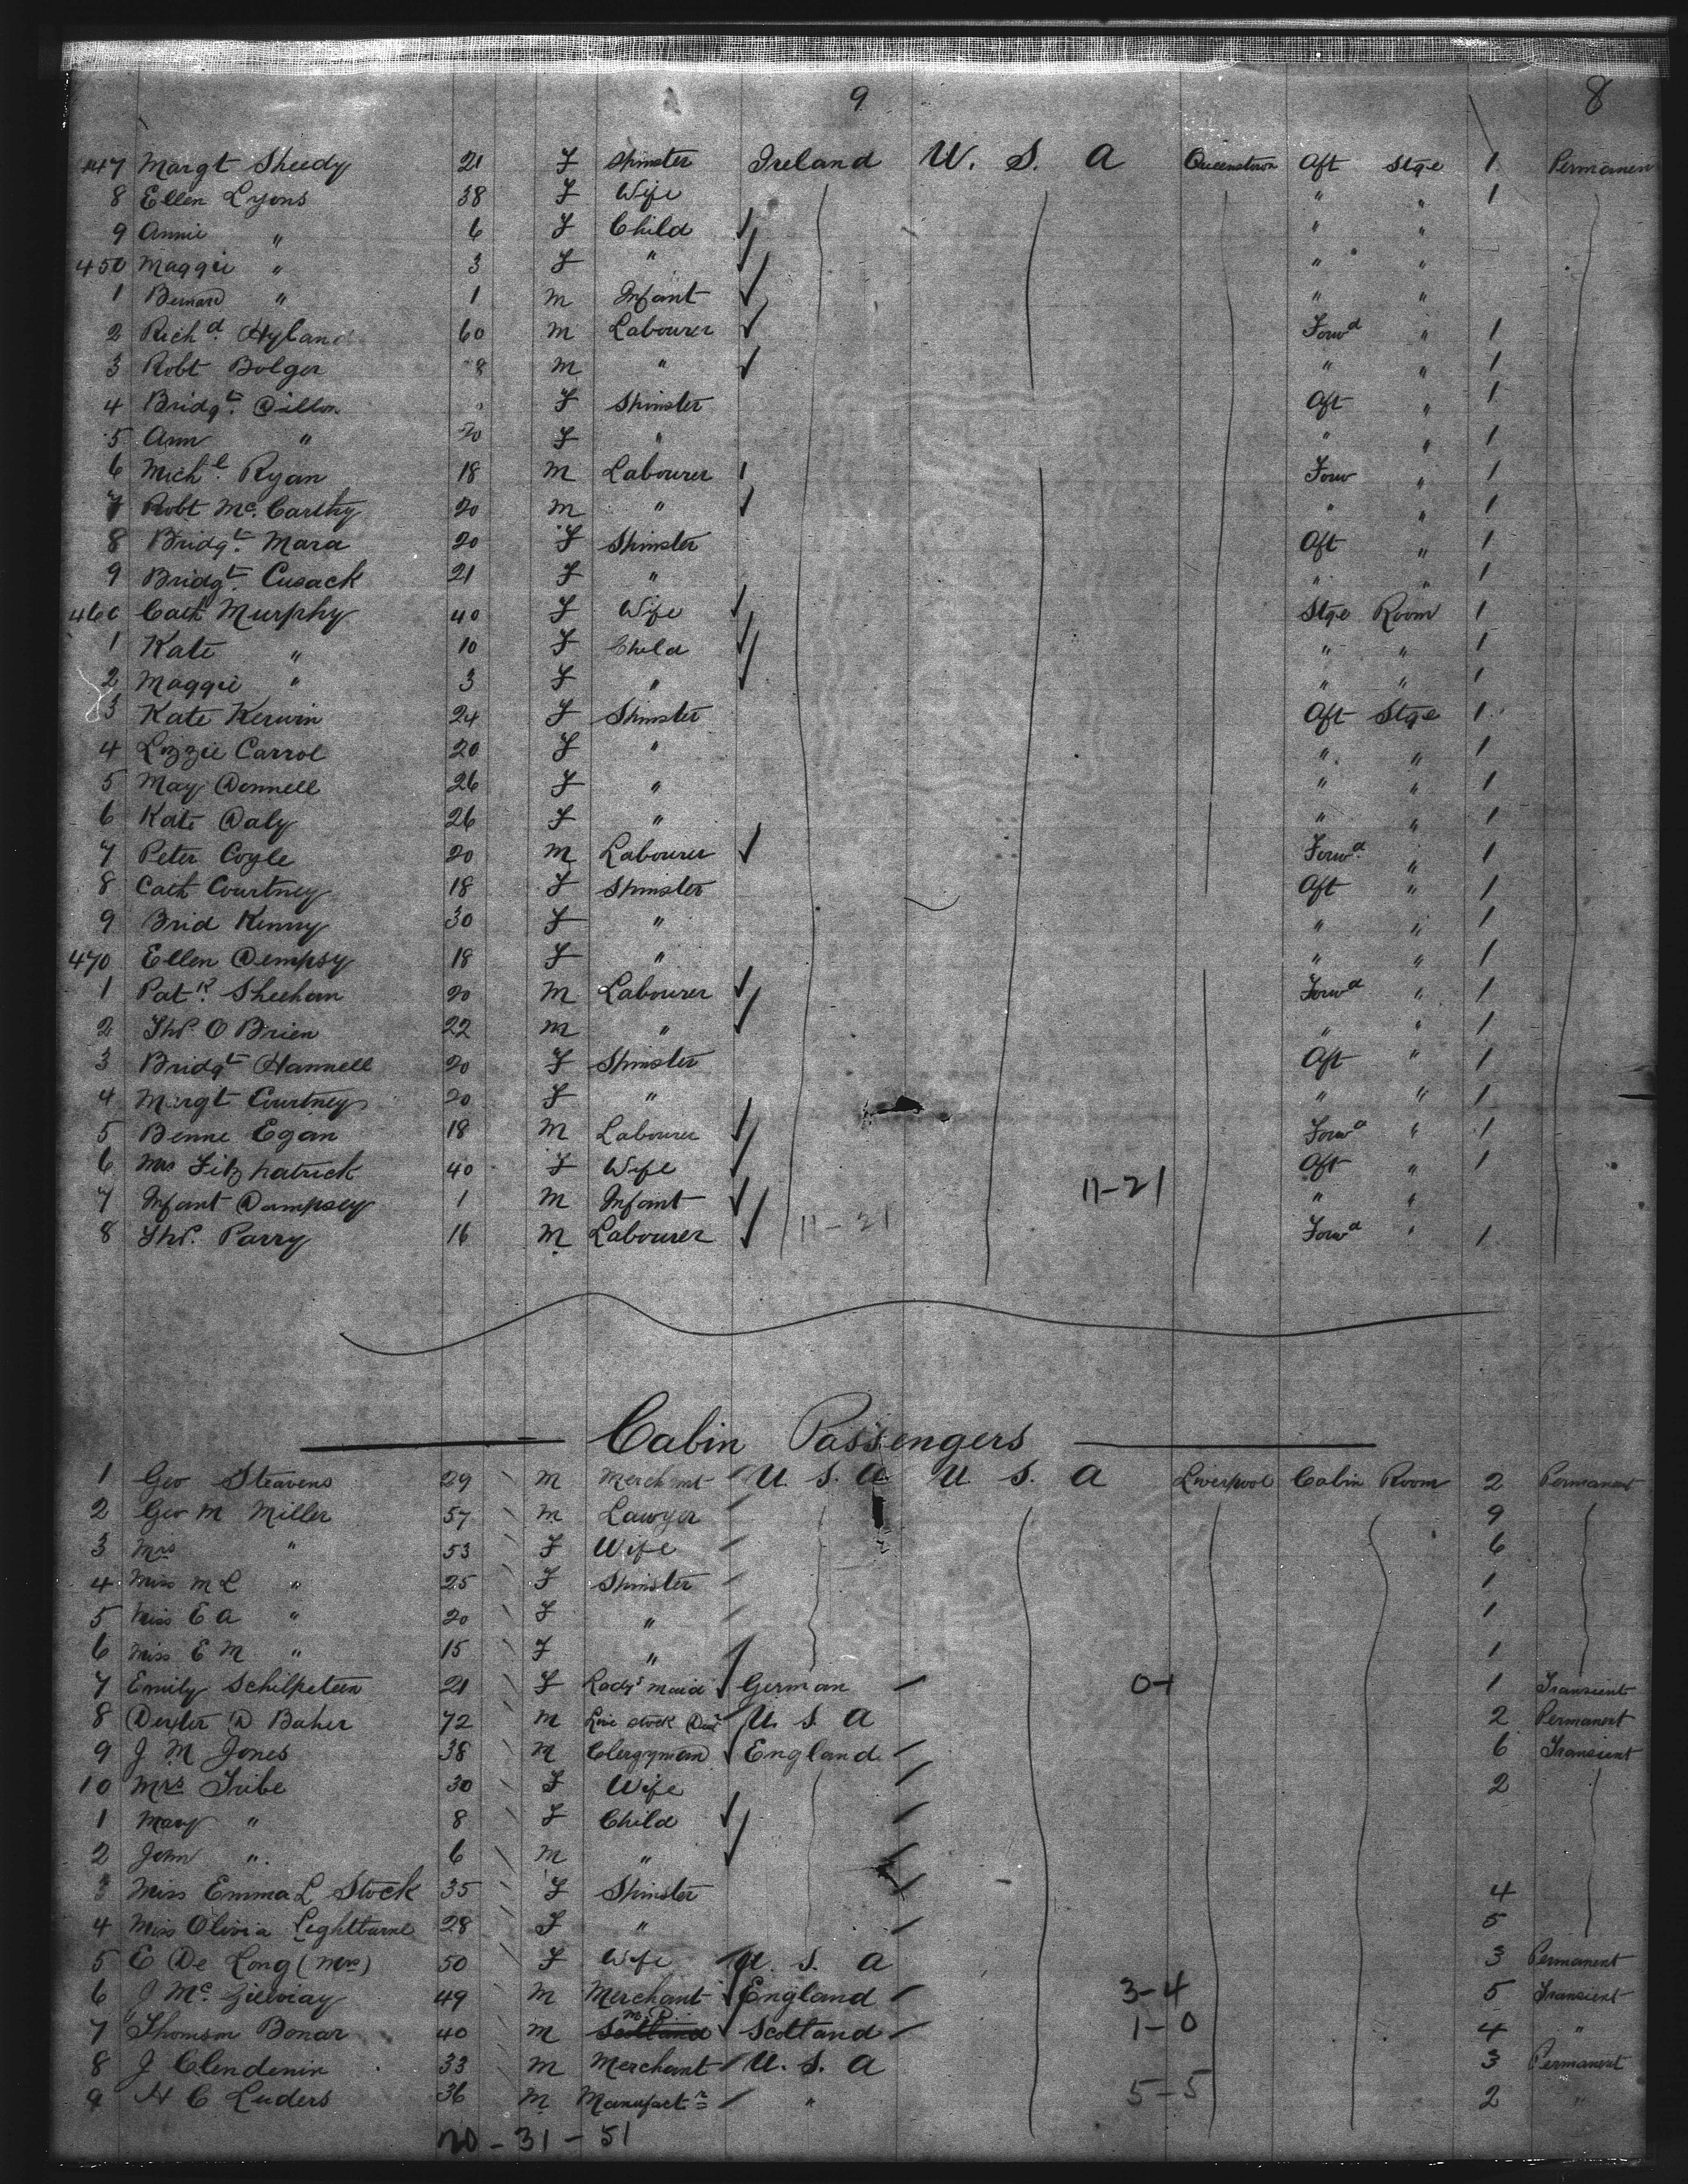 9 8
447 Margt Sheedy 21 F Spinster Ireland U. S. A Queenstown Aft Stge 1 Permanen
8 Ellen Lyons 38 F Wife " " 1
9 Annie " 6 F Child " "
450 Maggie " 3 F " " "
1 Bernard " 1 m Infant " "
2 Richd. Hyland 60 m Labourer Forwd " 1
3 Robt Bolger 8 m " " " 1
4 Bridgt. Dillon F Spinster Aft " 1
5 Ann " 20 F " " " 1
6 Michl. Ryan 18 m Labourer Forw " 1
7 Robt Mc. Carthy 20 m " " " 1
8 Bridgt. Mara 20 F Spinster Aft " 1
9 Bridgt. Cusack 21 F " " " 1
460 Cath Murphy 40 F Wife Stge Room 1
1 Kate " 10 F Child " " 1
2 Maggie " 3 F " " " 1
3 Kate Kerwin 24 F Spinster Aft Stge 1
4 Lizzie Carrol 20 F " " " 1
5 May Donnell 26 F " " " 1
6 Kate Daly 26 F " " " 1
7 Peter Coyle 20 m Labourer Forwd " 1
8 Cath Courtney 18 F Spinster Aft " 1
9 Brid Kenny 30 F " " " 1
470 Ellen Dempsy 18 F " " " 1
1 Patk. Sheehan 20 m Labourer Forwd " 1
2 Thos. O Brien 22 m " " " 1
3 Bridgt Hannell 20 F Spinster Aft " 1
4 Margt Courtney 20 F " " " 1
5 Benne Egan 18 m Labourer Forwd " 1
6 Mrs Fitzpatrick 40 F Wife Aft " 1
7 Infant Dampsey 1 m Infant 11-21 " "
8 Thos. Parry 16 m Labourer 11-21 Forwd " 1
Cabin Passengers
1 Geo Steavens 29 m Merchant U. S. A U. S. A Liverpool Cabin Room 2 Permanent
2 Geo M Miller 57 m Lawyer 9
3 Mrs " 53 F Wife 6
4 Miss M L " 25 F Spinster 1
5 Miss E A " 20 F " 1
6 Miss E M " 15 F " 1
7 Emily Schilpeteen 21 F Lady's maid German 0-1 1 Transient
8 Dexter D Baker 72 m Live stock U. S. A 2 Permanent
9 J M Jones 38 m Clergyman England 6 Transient
10 Mrs Tribe 30 F Wife 2
1 Mary " 8 F Child
2 John " 6 m "
3 Miss Emma L Stock 35 F Spinster 4
4 Miss Olivia Lightburne 28 F " 5
5 E De Long (Mrs) 50 F Wife U. S. A 3 Permanent
6 J Mc. 49 m Merchant England 3-4 5 Transient
7 Thomson Bonar 40 m M.P. Scotland Scotland 1-0 4 "
8 J Clendenin 33 m Merchant U. S. A 3 Permanent
9 H C Luders 36 m Manufactr " 5-5 2 "
20-31-51